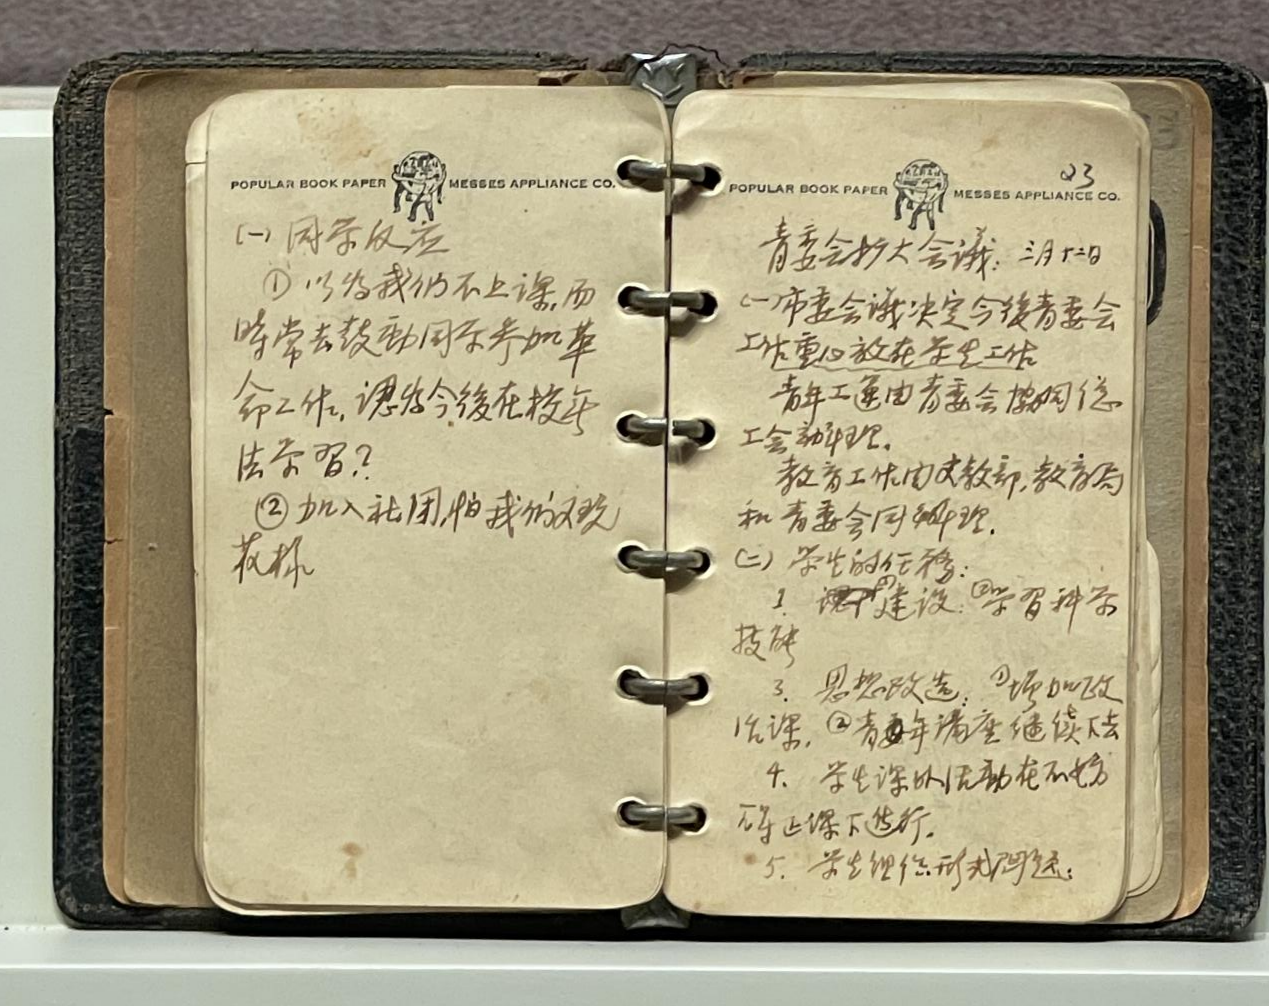 POPULAR BOOK PAPER MESSES APPLIANCE CO.
(一)同学反应
①以为我们不上课,而
时常去鼓动同学参加革
命工作,误为今後在校无
法学习?
②加入社团,怕我们又玩
花样
23
POPULAR BOOK PAPER MESSES APPLIANCE CO.
青委会扩大会议: 三月十二日
(一)市委会议决定今後青委会
工作重心放在学生工作
青年工运由青委会协同总
工会办理.
教育工作由文教部,教育局
和青委会同办理.
(二)学生的任务:
1. 建设: ②学习科学
技能
3. 思想改造: ①增加政
治课, ②青年讲座继续下去
4. 学生课外活动在不妨
碍正课下进行.
5. 学生组织形式问题: